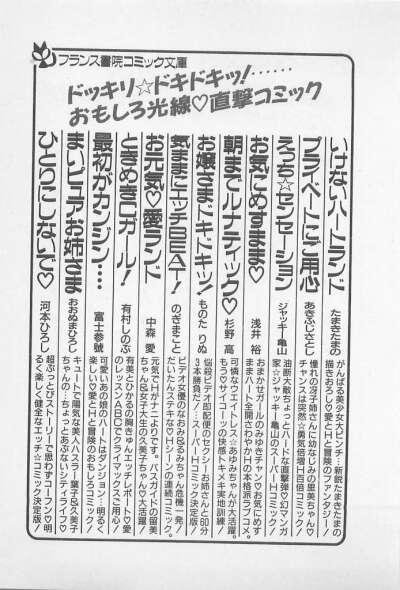 フランス書院コミック文庫
ドッキリ☆ドキドキッ!……
おもしろ光線♡直撃コミック
いけないハートランド
たまきたまの
がんばる美少女大ピンチ…新鋭たまきたまの
描きおろし♡愛とHと冒険のファンタジー!
プライベートにご用心
あきふじさとし
憧れの冴子姉さんに幼なじみの里美ちゃん♡
チャンスは突然☆勇気倍増H百倍コミック!
えっち☆センセーション
ジャッキー亀山
油断大敵ちょっとハードな直撃弾♡幻マンガ
家☆ジャッキー亀山のスーパーHコミック!
お気にめすまま♡
浅井 裕
おまかせガールのみゆきチャン♡お気にめす
ままハート全開さわやかHの本格派ラブコメ。
朝までルナティック♡
杉野 高
可憐なウエイトレス☆あゆみちゃんが大活躍。
もう♡サイコーの快感トキメキ実地訓練!
お嬢さまドキドキッ!
ものた りぬ
悩殺ビデオ即配便のセクシーお姉さんと60分
3本勝負だ!…スーパーHコミック決定版!
気ままにエッチBEAT!
のぎまこと
ビデオ女優のなおみ&るみちゃん危機一発!
だいたんステキなHシーンの連続コミック。
お元気♡愛ランド
中森 愛
元気でHがナニよりです。バスガイドの留美
ちゃん&女子大生の久美子ちゃん♡大活躍!
ときめきCガール!
有村しのぶ
有美とひかるの胸きゅんエッチレポート♡愛
のレッスンABCでクライマックスご用心!
最初がカンジン……
富士参號
可愛いあの娘のハートはダンジョン…明るく
楽しい♡愛とHと冒険のおもしろコミック!
まいピュアお姉さま
おおぬまひろし
キュートで陽気な美人ハスラー葉子&久美子
ちゃんの…ちょっとあぶないシティライフ♡
ひとりにしないで♡
河本ひろし
超ぶっとびストーリーで思わずコーフン♡明
るく楽しく健全なエッチ☆コミック決定版!